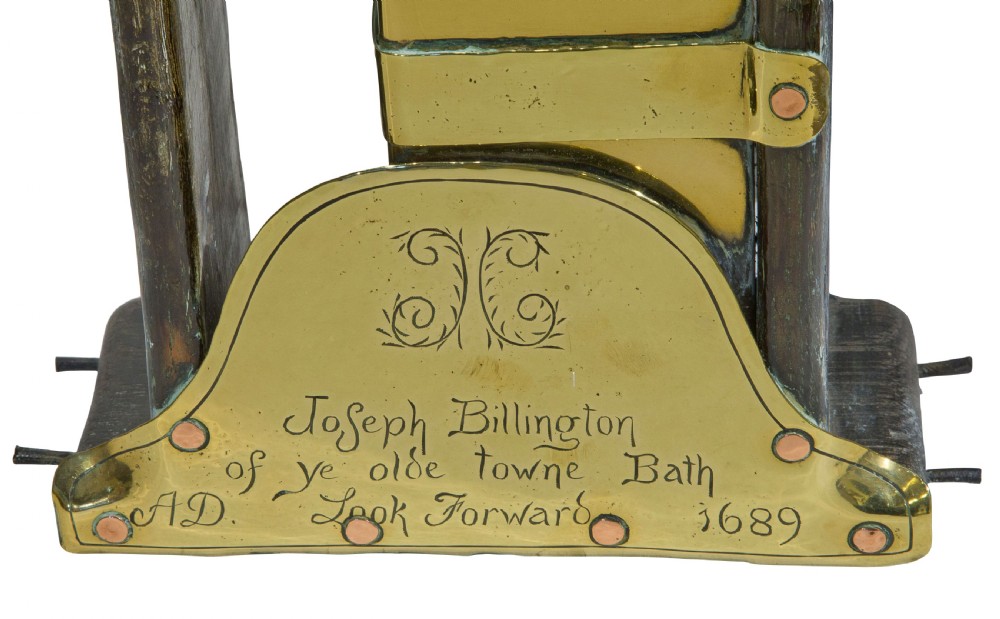 Joseph Billington
of ye olde towne Bath
AD. Look Forward 1689